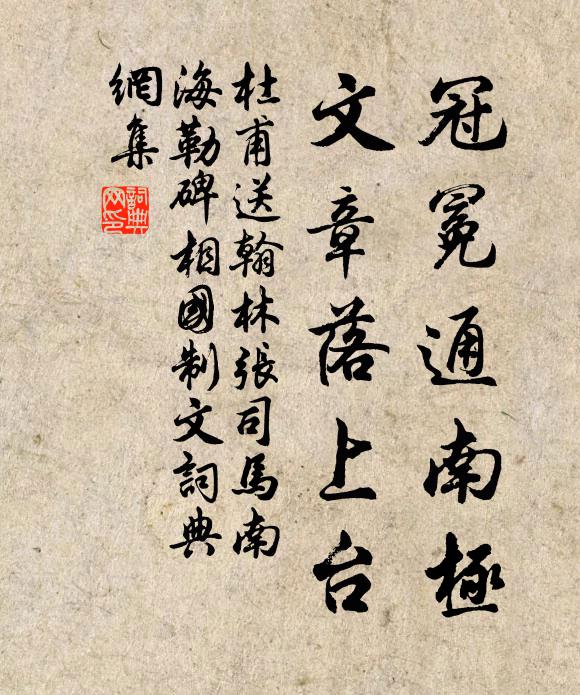 冠冕通南極
文章落上台
杜甫送翰林張司馬南
海勒碑相國制文詞典
網集
詞典
网印